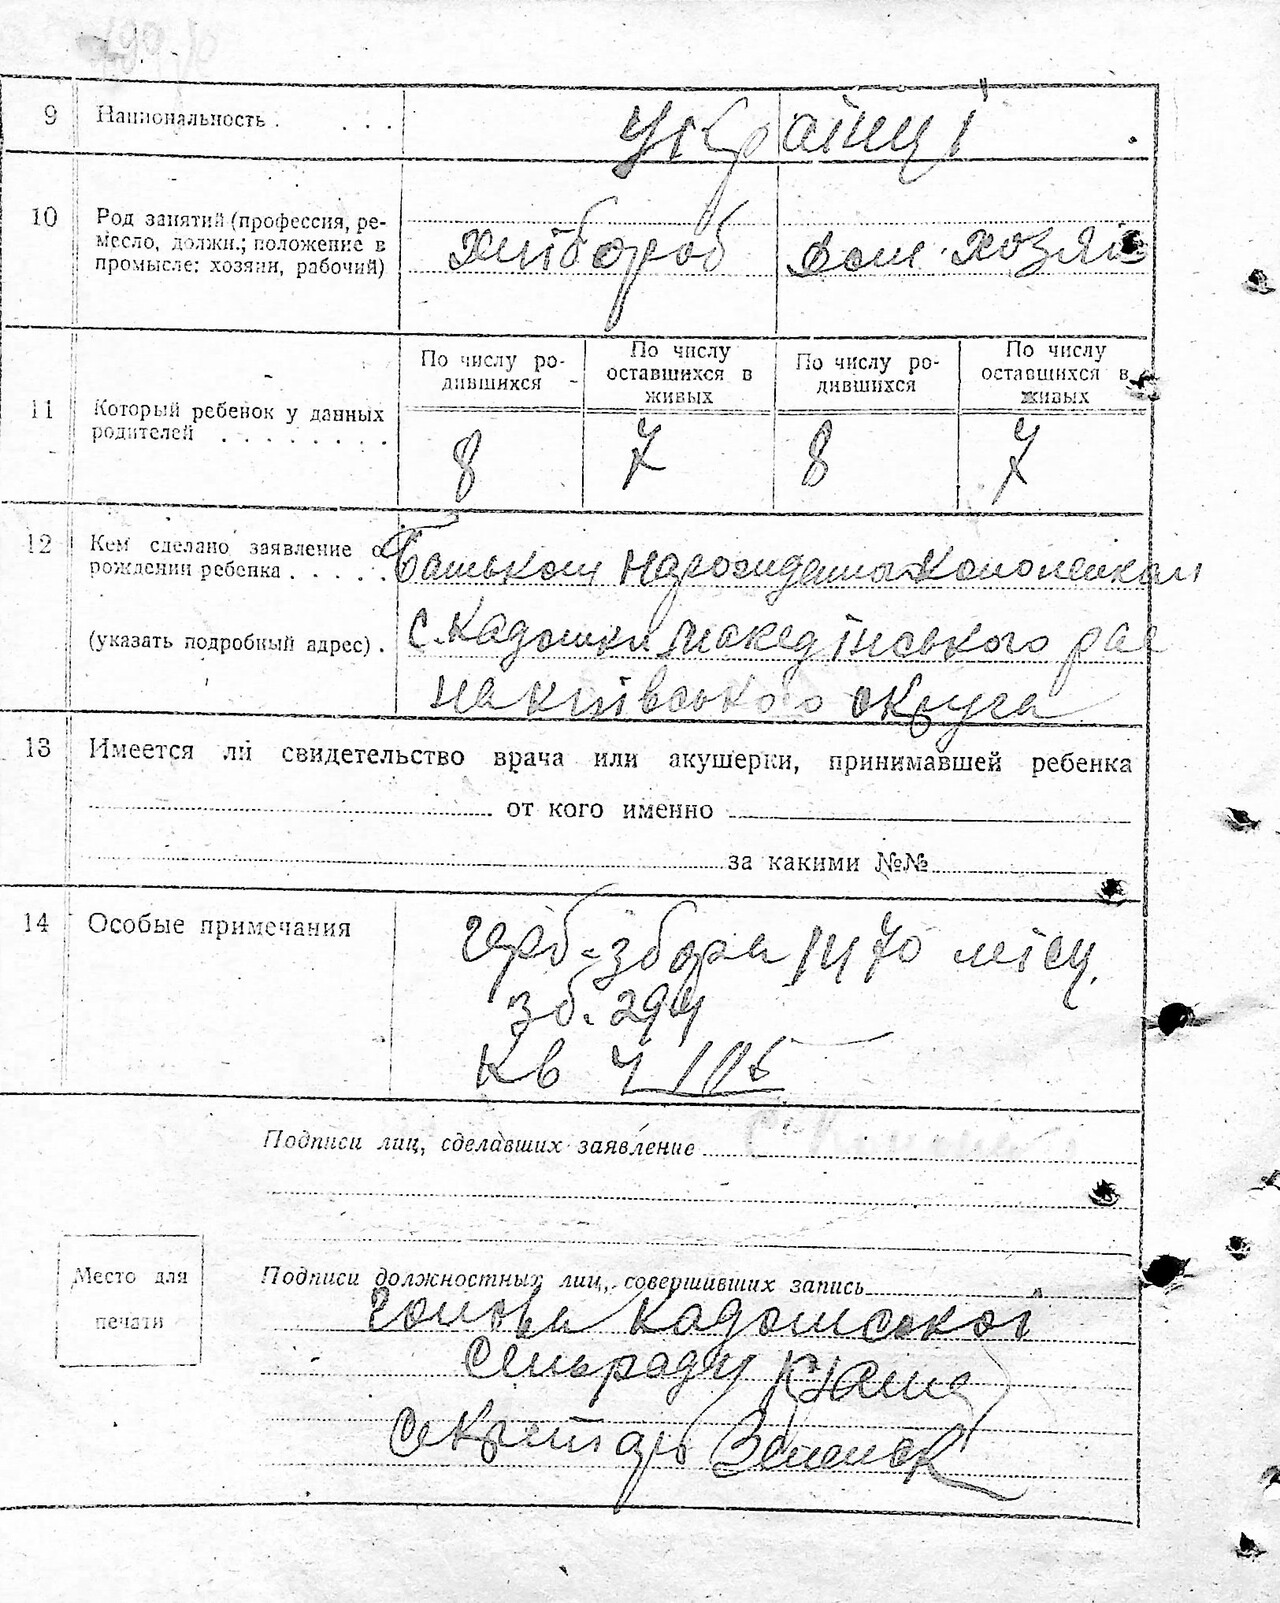 9 Национальность . . . . Українці
10 Род занятий (профессия, ре-
месло, должн.; положение в
промысле: хозяин, рабочий)
хлібороб дом. хозяй
11 Который ребенок у данных
родителей . . . . . . . .
По числу ро-
дившихся
По числу
оставшихся в
живых
По числу ро-
дившихся
По числу
оставшихся в
живых
8 7 8 7
12 Кем сделано заявление о
рождении ребенка . . . . .
(указать подробный адрес) .
Батьком
с. Кадомки рає
на київського округа
13 Имеется ли свидетельство врача или акушерки, принимавшей ребенка
от кого именно
за какими №№
14 Особые примечания
герб. збори місц.
зб. 294
Кв
Подписи лиц, сделавших заявление
Место для
печати
Подписи должностных лиц, совершивших запись
голова Кадомської
сільради
Секретарь